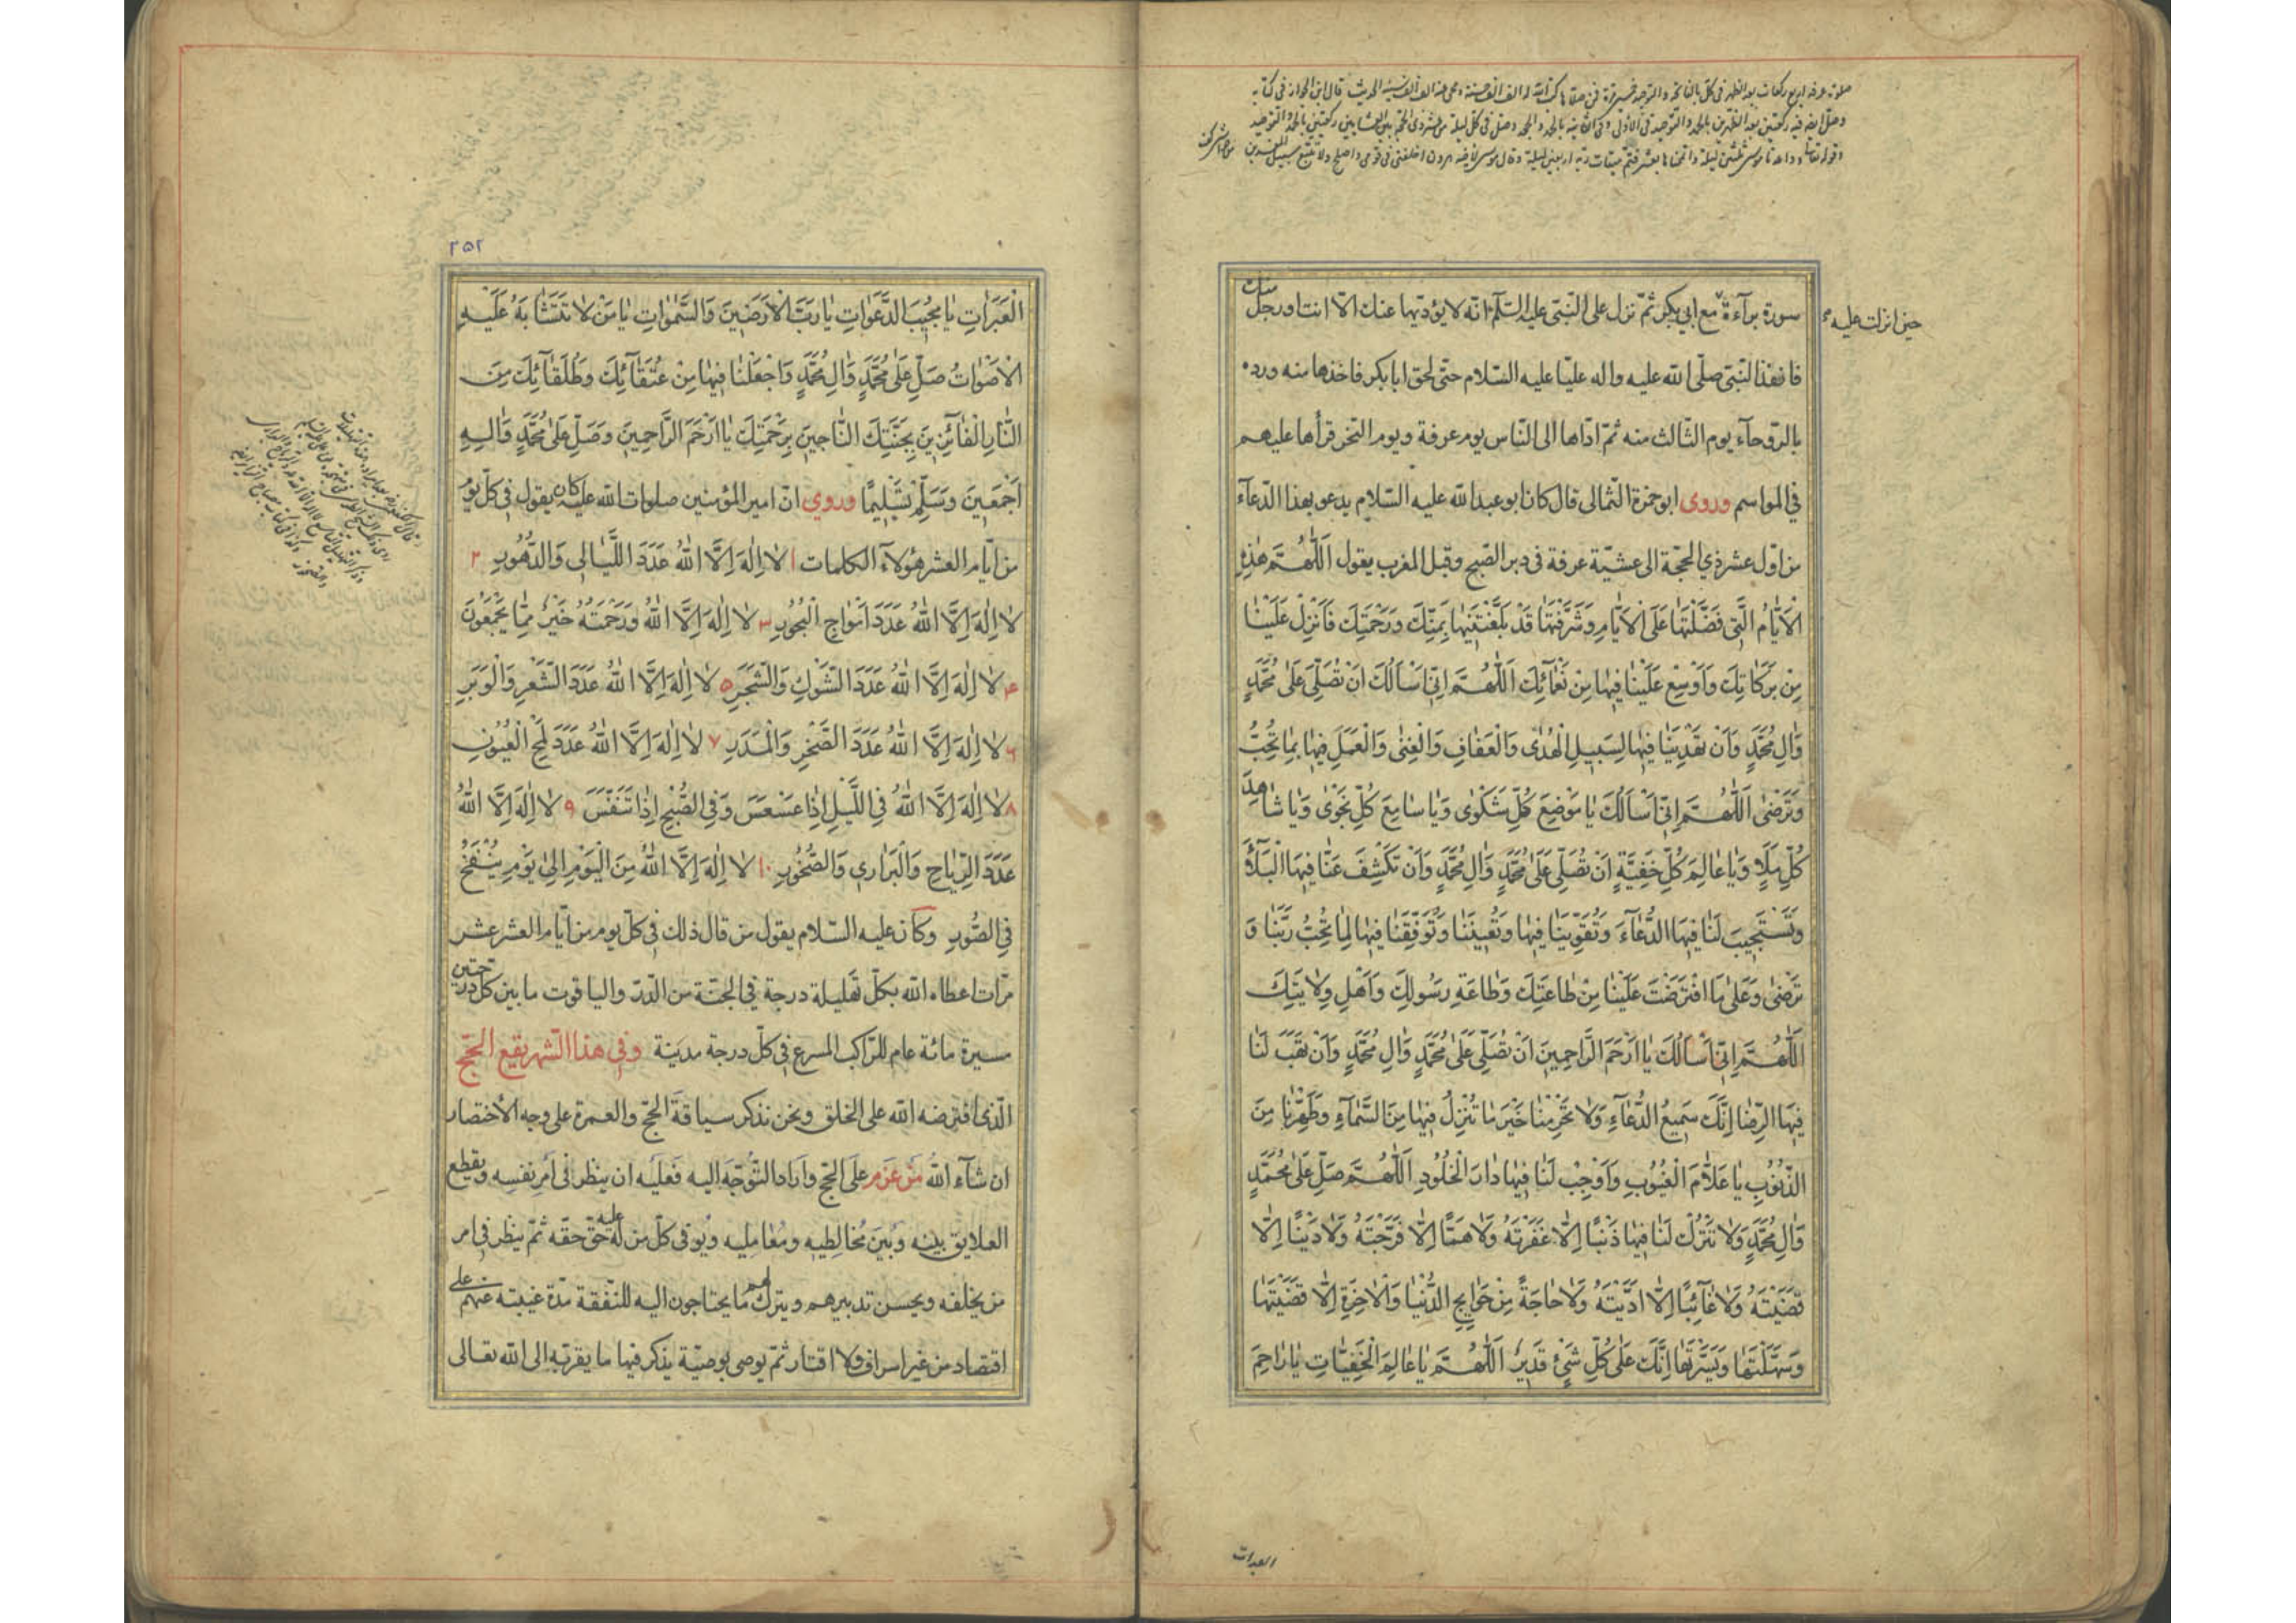 سورة برآءة مع ابي بكر ثمّ نزل على النّبيّ عليه السّلم انّه لا يؤدّيها عنك الّا انت او رجل منك
حين انزلت عليه
فانفذ النّبيّ صلّى الله عليه واله عليّا عليه السّلام حتّى لحق ابا بكر فاخذها منه وردّه
بالرّوحآء يوم الثّالث منه ثمّ ادّاها الى النّاس يوم عرفة ويوم النّحر قرأها عليهم
في المواسم وروى ابو حمزة الثّمالى قال كان ابو عبد الله عليه السّلام يدعو بهذا الدّعآء
من اوّل عشر ذي الحجّة الى عشيّة عرفة في دبر الصّبح وقبل المغرب يقول اَللّٰهُمَّ هٰذِهِ
الْاَيّٰامُ الَّتى فَضَّلْتَهٰا عَلَى الْاَيّٰامِ وَشَرَّفْتَهٰا قَدْ بَلَّغْتَنيهٰا بِمَنِّكَ وَرَحْمَتِكَ فَاَنْزِلْ عَلَيْنٰا
مِنْ بَرَكٰاتِكَ وَاَوْسِعْ عَلَيْنٰا فيهٰا مِنْ نَعْمٰآئِكَ اَللّٰهُمَّ اِنّى اَسْاَلُكَ اَنْ تُصَلِّىَ عَلىٰ مُحَمَّدٍ
وَاٰلِ مُحَمَّدٍ وَاَنْ تَهْدِيَنٰا فيهٰا لِسَبيلِ الْهُدٰى وَالْعَفٰافِ وَالْغِنٰى وَالْعَمَلِ فيهٰا بِمٰا تُحِبُّ
وَتَرْضىٰ اَللّٰهُمَّ اِنّى اَسْاَلُكَ يٰا مَوْضِعَ كُلِّ شَكْوٰى وَيٰا سٰامِعَ كُلِّ نَجْوٰى وَيٰا شٰاهِدَ
كُلِّ مَلَاٍ وَيٰا عٰالِمَ كُلِّ خَفِيَّةٍ اَنْ تُصَلِّىَ عَلىٰ مُحَمَّدٍ وَاٰلِ مُحَمَّدٍ وَاَنْ تَكْشِفَ عَنّٰا فيهَا الْبَلٰآءَ
وَتَسْتَجيبَ لَنٰا فيهَا الدُّعٰآءَ وَتُقَوِّيَنٰا فيهٰا وَتُعينَنٰا وَتُوَفِّقَنٰا فيهٰا لِمٰا تُحِبُّ رَبَّنٰا وَ
تَرْضىٰ وَعَلىٰ مَا افْتَرَضْتَ عَلَيْنٰا مِنْ طٰاعَتِكَ وَطٰاعَةِ رَسُولِكَ وَاَهْلِ وِلٰايَتِكَ
اَللّٰهُمَّ اِنّى اَسْاَلُكَ يٰا اَرْحَمَ الرَّاحِمينَ اَنْ تُصَلِّىَ عَلىٰ مُحَمَّدٍ وَاٰلِ مُحَمَّدٍ وَاَنْ تَهَبَ لَنٰا
فيهَا الرِّضٰا اِنَّكَ سَميعُ الدُّعٰآءِ وَلٰا تَحْرِمْنٰا خَيْرَ مٰا تُنْزِلُ فيهٰا مِنَ السَّمٰآءِ وَطَهِّرْنٰا مِنَ
الذُّنُوبِ يٰا عَلّٰامَ الْغُيُوبِ وَاَوْجِبْ لَنٰا فيهٰا دٰارَ الْخُلُودِ اَللّٰهُمَّ صَلِّ عَلىٰ مُحَمَّدٍ
وَاٰلِ مُحَمَّدٍ وَلٰا تَتْرُكْ لَنٰا فيهٰا ذَنْبًا اِلّٰا غَفَرْتَهُ وَلٰا هَمًّا اِلّٰا فَرَّجْتَهُ وَلٰا دَيْنًا اِلّٰا
قَضَيْتَهُ وَلٰا غٰآئِبًا اِلّٰا اَدَّيْتَهُ وَلٰا حٰاجَةً مِنْ حَوٰايِجِ الدُّنْيٰا وَالْاٰخِرَةِ اِلّٰا قَضَيْتَهٰا
وَسَهَّلْتَهٰا وَيَسَّرْتَهٰا اِنَّكَ عَلىٰ كُلِّ شَىْءٍ قَديرٌ اَللّٰهُمَّ يٰا عٰالِمَ الْخَفِيّٰاتِ يٰا رٰاحِمَ
العبرات
٢٥٢
الْعَبَرٰاتِ يٰا مُجيبَ الدَّعَوٰاتِ يٰا رَبَّ الْاَرَضينَ وَالسَّمٰوٰاتِ يٰا مَنْ لٰا تَتَشٰابَهُ عَلَيْهِ
الْاَصْوٰاتُ صَلِّ عَلىٰ مُحَمَّدٍ وَاٰلِ مُحَمَّدٍ وَاجْعَلْنٰا فيهٰا مِنْ عُتَقٰآئِكَ وَطُلَقٰآئِكَ مِنَ
النّٰارِ الْفٰآئِزينَ بِجَنَّتِكَ النّٰاجينَ بِرَحْمَتِكَ يٰا اَرْحَمَ الرَّاحِمينَ وَصَلِّ عَلىٰ مُحَمَّدٍ وَاٰلِهِ
اَجْمَعينَ وَسَلِّمْ تَسْليمًا وروي انّ امير المؤمنين صلوات الله عليه كان يقول في كلّ يوم
من ايّام العشر هؤلآء الكلمات ١ لٰا اِلٰهَ اِلَّا اللّٰهُ عَدَدَ اللَّيٰالى وَالدُّهُورِ ٢
لٰا اِلٰهَ اِلَّا اللّٰهُ عَدَدَ اَمْوٰاجِ الْبُحُورِ ٣ لٰا اِلٰهَ اِلَّا اللّٰهُ وَرَحْمَتُهُ خَيْرٌ مِمّٰا يَجْمَعُونَ
۴ لٰا اِلٰهَ اِلَّا اللّٰهُ عَدَدَ الشَّوْكِ وَالشَّجَرِ ۵ لٰا اِلٰهَ اِلَّا اللّٰهُ عَدَدَ الشَّعْرِ وَالْوَبَرِ
۶ لٰا اِلٰهَ اِلَّا اللّٰهُ عَدَدَ الصَّخْرِ وَالْمَدَرِ ٧ لٰا اِلٰهَ اِلَّا اللّٰهُ عَدَدَ لَمْحِ الْعُيُونِ
٨ لٰا اِلٰهَ اِلَّا اللّٰهُ فِى اللَّيْلِ اِذٰا عَسْعَسَ وَفِى الصُّبْحِ اِذٰا تَنَفَّسَ ٩ لٰا اِلٰهَ اِلَّا اللّٰهُ
عَدَدَ الرِّيٰاحِ وَالْبَرٰاري وَالصُّخُورِ ١٠ لٰا اِلٰهَ اِلَّا اللّٰهُ مِنَ الْيَوْمِ اِلىٰ يَوْمِ يُنْفَخُ
فِى الصُّورِ وكان عليه السّلام يقول من قال ذلك في كلّ يوم من ايّام العشر عشر
مرّات اعطاه الله بكلّ تهليلة درجة في الجنّة من الدّرّ والياقوت ما بين كلّ درجتين
مسيرة مائة عام للرّاكب المسرع في كلّ درجة مدينة وفي هذا الشهر يقع الحجّ
الّذى افترضه الله على الخلق ونحن نذكر سياقة الحجّ والعمرة على وجه الأختصار
ان شآء الله مَنْ عَزَم على الحجّ واراد التّوجّه اليه فعليه ان ينظر في امر نفسه ويقطع
العلايق بينه وبين مخالطيه ومعامليه ويوفى كلّ من له عليه حقّ حقّه ثمّ ينظر في امر
من يخلفه ويحسن تدبيرهم ويترك لهم ما يحتاجون اليه للنّفقة مدّة غيبته عنهم على
اقتصاد من غير اسراف ولا اقتار ثمّ يوصى بوصيّة يذكر فيها ما يقرّبه الى الله تعالى